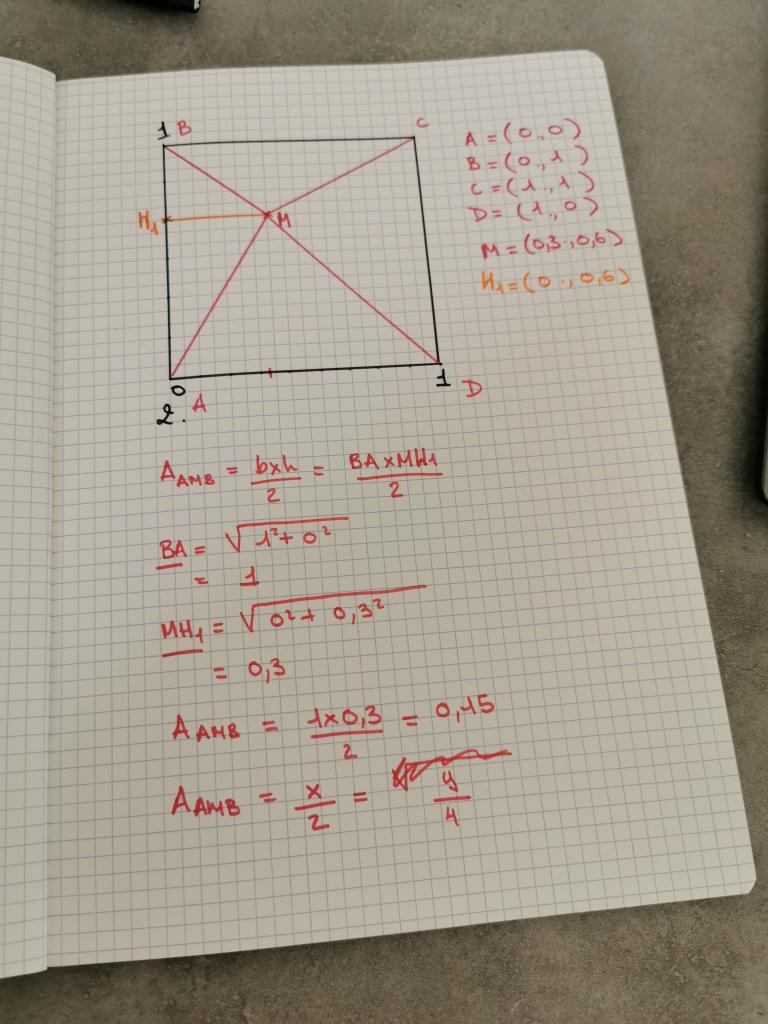 1 B
C
A = (0.,0)
B = (0.,1)
C = (1.,1)
D = (1.,0)
H₁
M
M = (0,3.,0,6)
H₁ = (0.,0,6)
0
1
D
2. A
A_AMB = b×h/2 = BA×MH1/2
BA = √1²+0²
= 1
MH₁ = √0²+0,3²
= 0,3
A_AMB = 1×0,3/2 = 0,15
A_AMB = x/2 = y/4